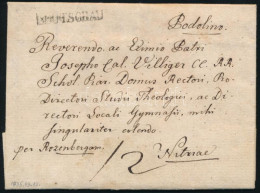 Podolino.
Reverendo ac Eximio Patri
Josepho Cal. Villiger CC. RR.
Schol. Piar. Domus Rectori, Pro
Directori Studii Theologici, ac Di
rectori Locali Gymnasii, mihi
singulariter colendo.
per Rozenbergam.
Nitriae
12